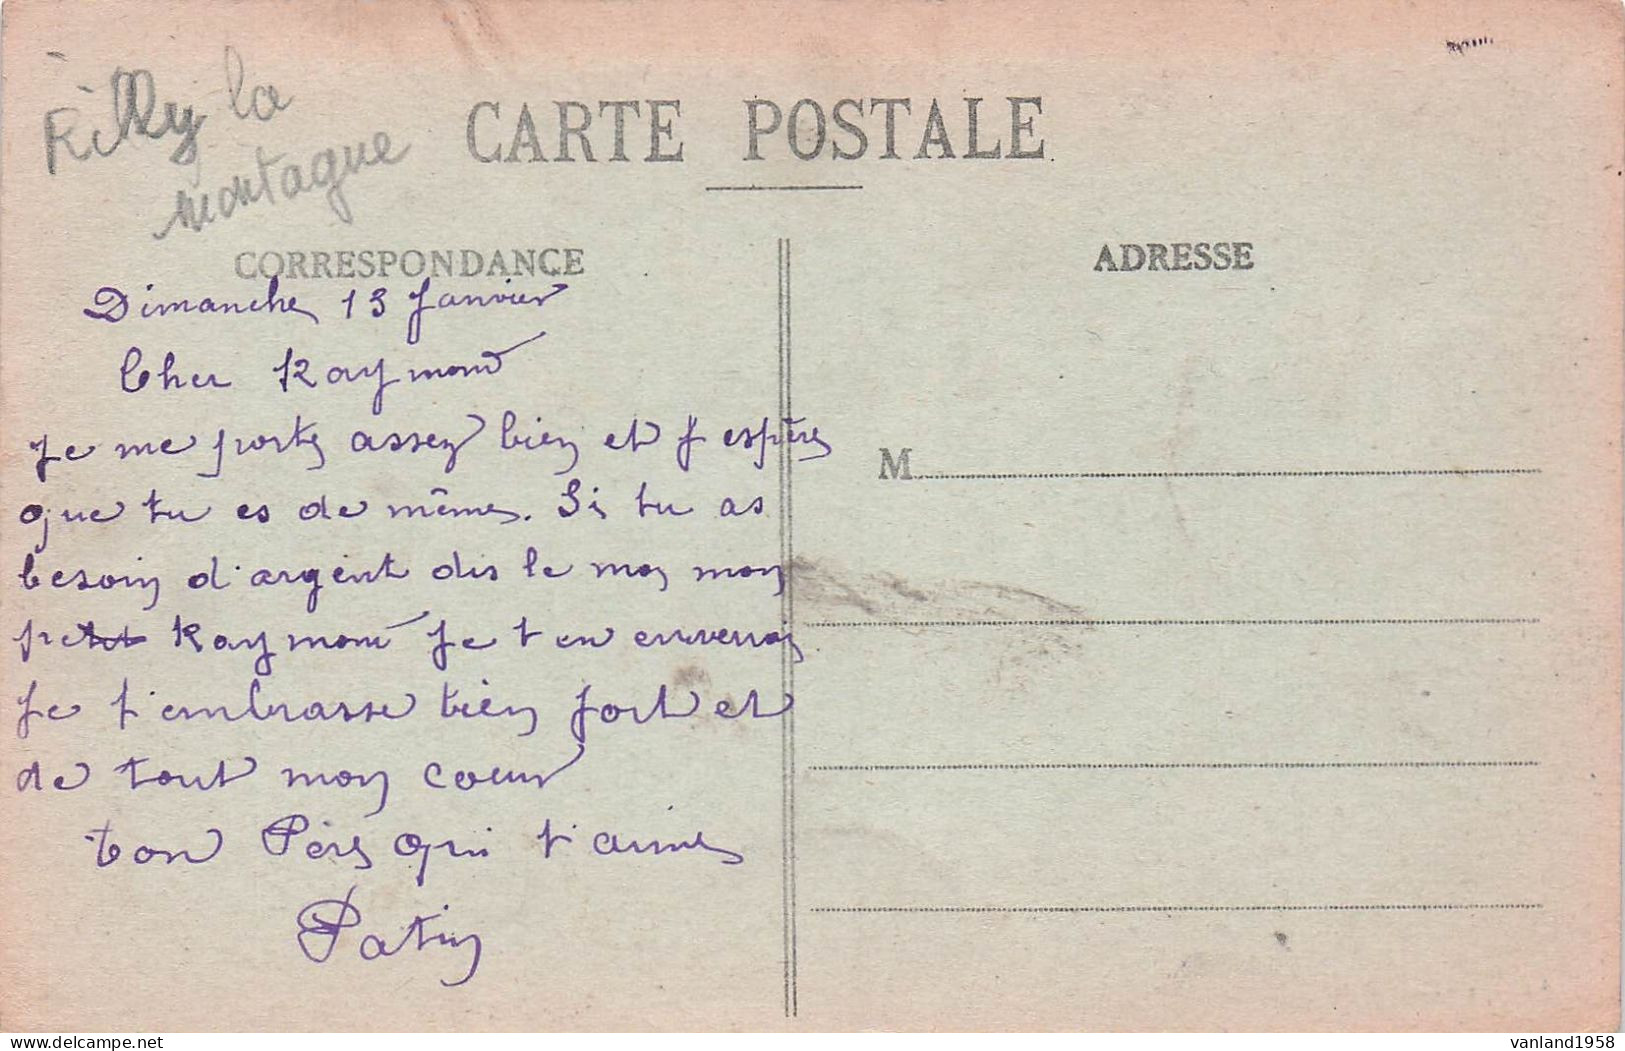 Rilly la
montagne
CARTE POSTALE
CORRESPONDANCE
ADRESSE
Dimanche 13 Janvier
Cher Raymond
Je me porte assez bien et J espère
que tu es de même. Si tu as
besoin d'argent dis le moi mon
petit Raymond Je t en enverrai
Je t'embrasse bien fort et
de tout mon coeur
ton Père qui t'aime
Patin
M
delcampe.net
vanland1958